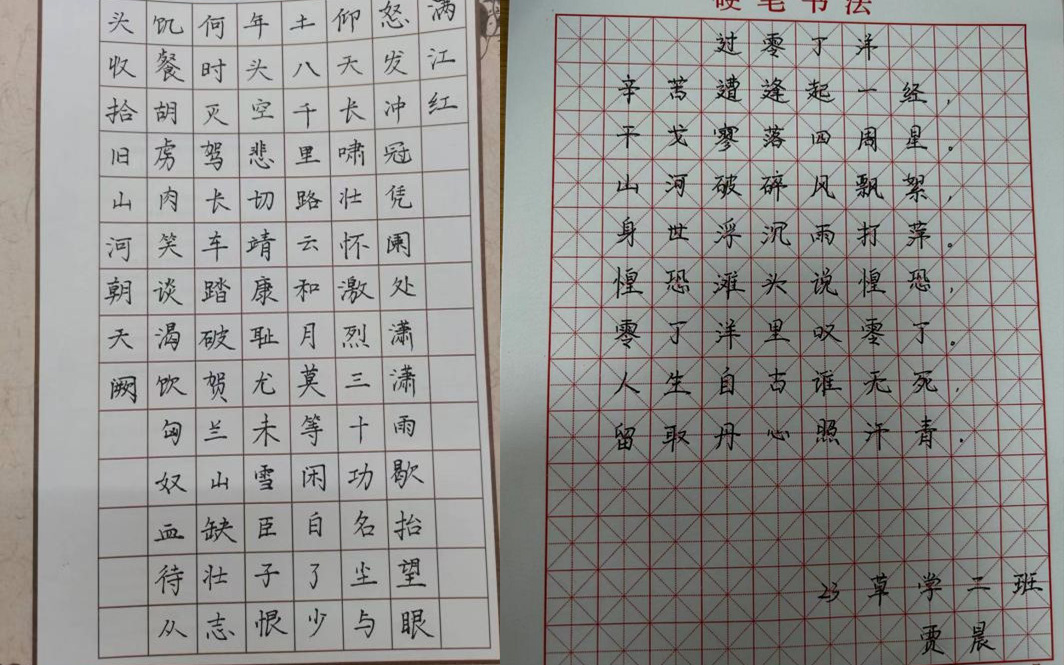 满江红
怒发冲冠凭阑处潇潇雨歇抬望眼
仰天长啸壮怀激烈三十功名尘与
土八千里路云和月莫等闲自了少
年头空悲切靖康耻尤未雪臣子恨
何时灭驾长车踏破贺兰山缺壮志
饥餐胡虏肉笑谈渴饮匈奴血待从
头收拾旧山河朝天阙
硬笔书法
过零了洋
辛苦遭逢起一经,
干戈寥落四周星。
山河破碎风飘絮,
身世浮沉雨打萍。
惶恐滩头说惶恐,
零丁洋里叹零丁。
人生自古谁无死,
留取丹心照汗青.
23草学二班
贾晨